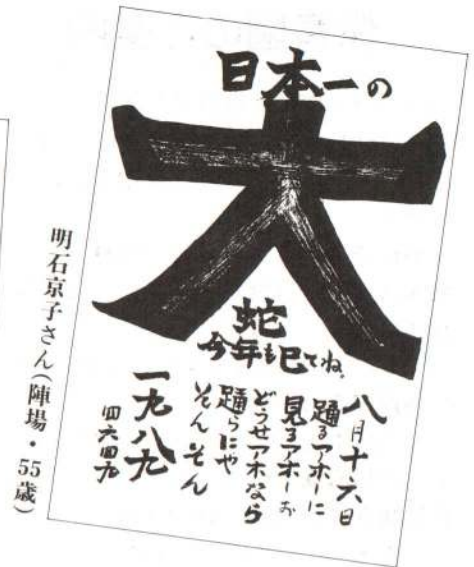 日本一の
大
蛇
今年も巳てね。
八月十六日
踊るアホーに
見るアホーお
どうせアホなら
踊らにや
そんそん
一九八九
四六四九
明石京子さん(陣場・55歳)